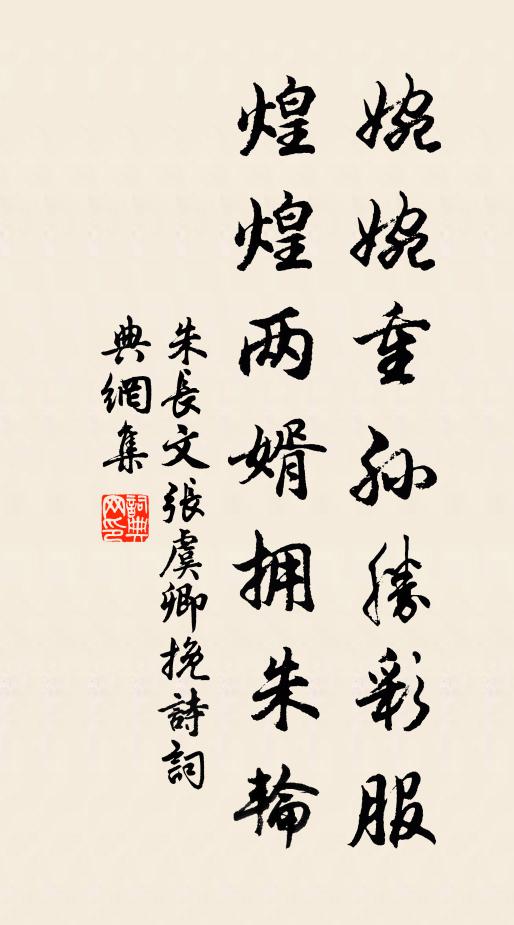 婉婉重孙勝彩服
煌煌两婿拥朱輪
朱長文張虞卿挽詩詞
典網集
詞典網印